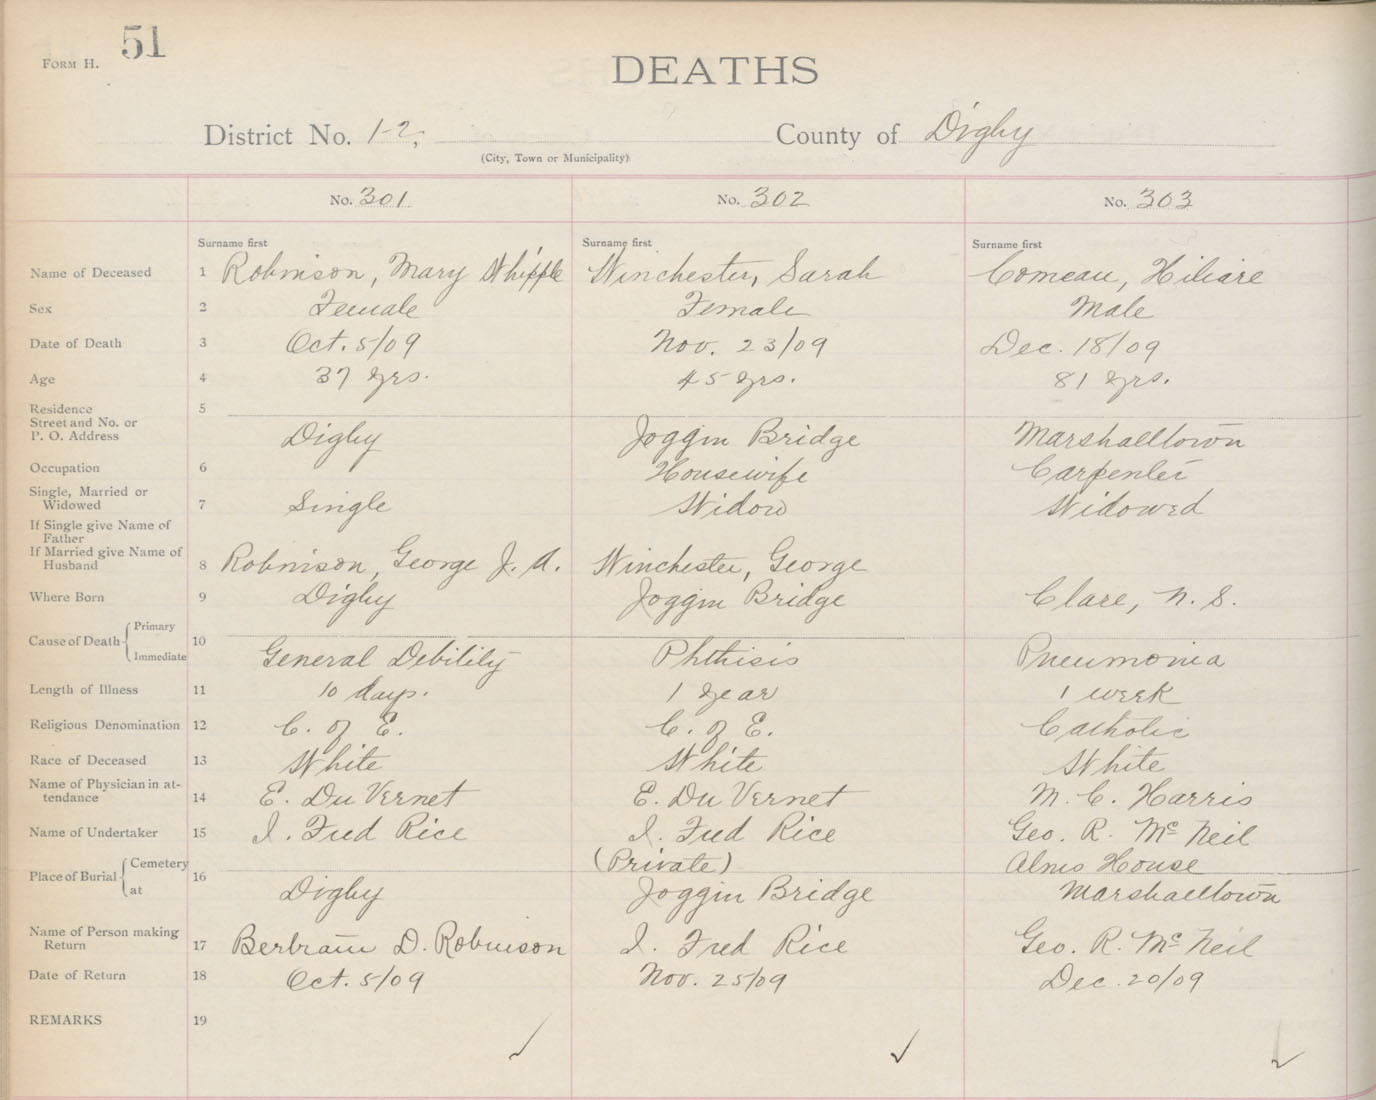 FORM H. 51
DEATHS
District No. 1-2, County of Digby
(City, Town or Municipality)
No. 301 No. 302 No. 303
Surname first Surname first Surname first
Name of Deceased 1 Robinson, Mary Whipple Winchester, Sarah Comeau, Hiliare
Sex 2 Female Female Male
Date of Death 3 Oct. 5/09 Nov. 23/09 Dec. 18/09
Age 4 37 yrs. 45 yrs. 81 yrs.
Residence 5
Street and No. or
P. O. Address Digby Joggin Bridge Marshalltown
Occupation 6 Housewife Carpenter
Single, Married or
Widowed 7 Single Widow Widowed
If Single give Name of
Father
If Married give Name of
Husband 8 Robinson, George J. A. Winchester, George
Where Born 9 Digby Joggin Bridge Clare, N. S.
Primary
Cause of Death 10
Immediate General Debility Phthisis Pneumonia
Length of Illness 11 10 days. 1 year 1 week
Religious Denomination 12 C. of E. C. of E. Catholic
Race of Deceased 13 White White White
Name of Physician in at-
tendance 14 E. Du Vernet E. Du Vernet M. C. Harris
Name of Undertaker 15 J. Fred Rice J. Fred Rice Geo. R. McNeil
Cemetery (Private) Alms House
Place of Burial 16
at Digby Joggin Bridge Marshalltown
Name of Person making
Return 17 Bertram D. Robinson J. Fred Rice Geo. R. McNeil
Date of Return 18 Oct. 5/09 Nov. 25/09 Dec. 20/09
REMARKS 19